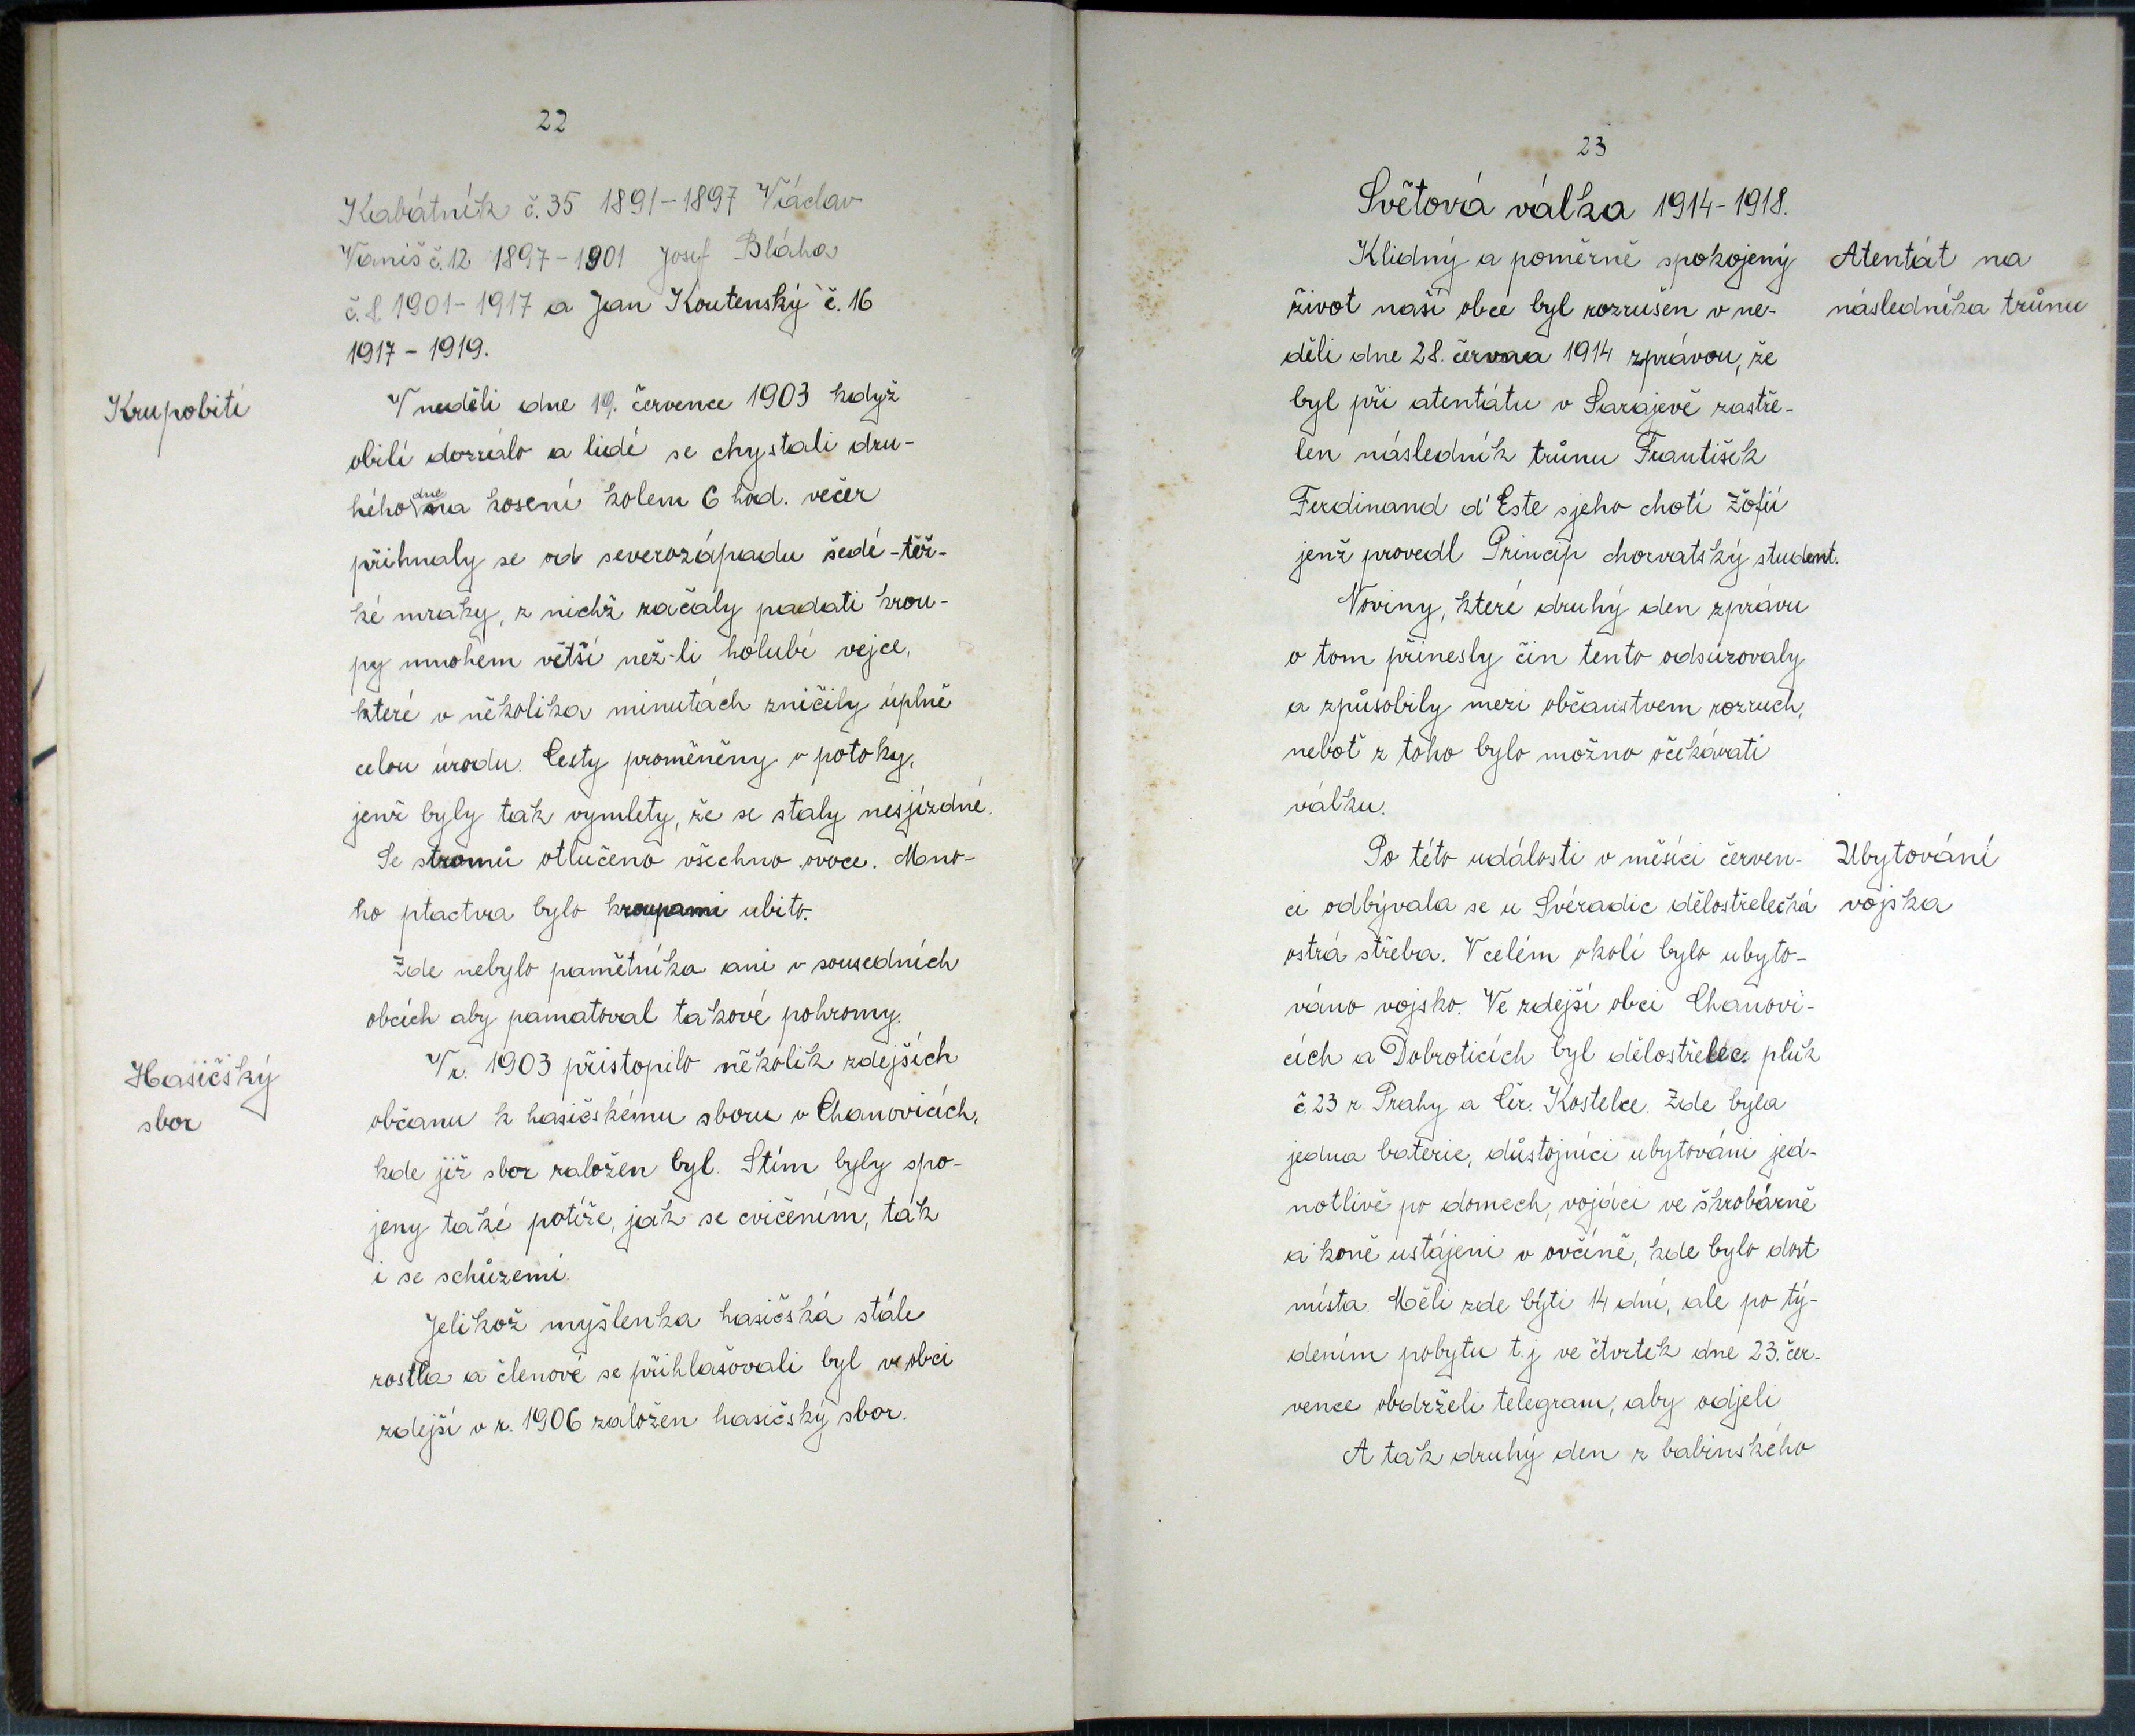 22
Kabátník č. 35 1891-1897 Václav
Vaniš č. 12 1897-1901 Josef Bláha
č. 8 1901-1917 a Jan Koutenský č. 16
1917-1919.
Krupobití
V neděli dne 19. července 1903 když
obilí dozrálo a lidé se chystali dru-
hého dne na kosení kolem 6 hod. večer
přihnaly se od severozápadu šedé-těž-
ké mraky, z nichž začaly padati krou-
py mnohem větší než-li holubí vejce,
které v několika minutách zničily úplně
celou úrodu. Cesty proměněny v potoky,
jenž byly tak vymlety, že se staly nesjízdné.
Se stromů otlučeno všechno ovoce. Mno-
ho ptactva bylo kroupami ubito.
Zde nebylo pamětníka ani v sousedních
obcích aby pamatoval takové pohromy.
Hasičský
sbor
V r. 1903 přistopilo několik zdejších
občanu k hasičskému sboru v Chanovicích,
kde již sbor založen byl. Stím byly spo-
jeny také potíže, jak se cvičením, tak
i se schůzemi.
Jelikož myšlenka hasičská stále
rostla a členové se přihlašovali byl ve obci
zdejší v r. 1906 založen hasičský sbor.
23
Světová válka 1914-1918.
Atentát na
následníka trůnu
Klidný a poměrně spokojený
život naší obce byl rozrušen v ne-
děli dne 28. června 1914 zprávou, že
byl při atentátu v Sarajevě zastře-
len následník trůnu František
Ferdinand d'Este sjeho chotí Žofií
jenž provedl Princip chorvatský student.
Noviny, které druhý den zprávu
o tom přinesly čin tento odsuzovaly
a způsobily mezi občanstvem rozruch,
neboť z toho bylo možno očekávati
válku.
Ubytování
vojska
Po této události v měsíci červen-
ci odbývala se u Svéradic dělostřelecká
ostrá střelba. V celém okolí bylo ubyto-
váno vojsko. Ve zdejší obci Chanovi-
cích a Dobroticích byl dělostřelec. pluk
č. 23 z Prahy a Čer. Kostelce. Zde byla
jedna baterie, důstojníci ubytováni jed-
notlivě po domech, vojáci ve škrobárně
a koně ustájeni v ovčíně, kde bylo dost
místa. Měli zde býti 14 dní, ale po tý-
dením pobytu t.j ve čtvrtek dne 23. čer-
vence obdrželi telegram, aby odjeli
A tak druhý den z babinského